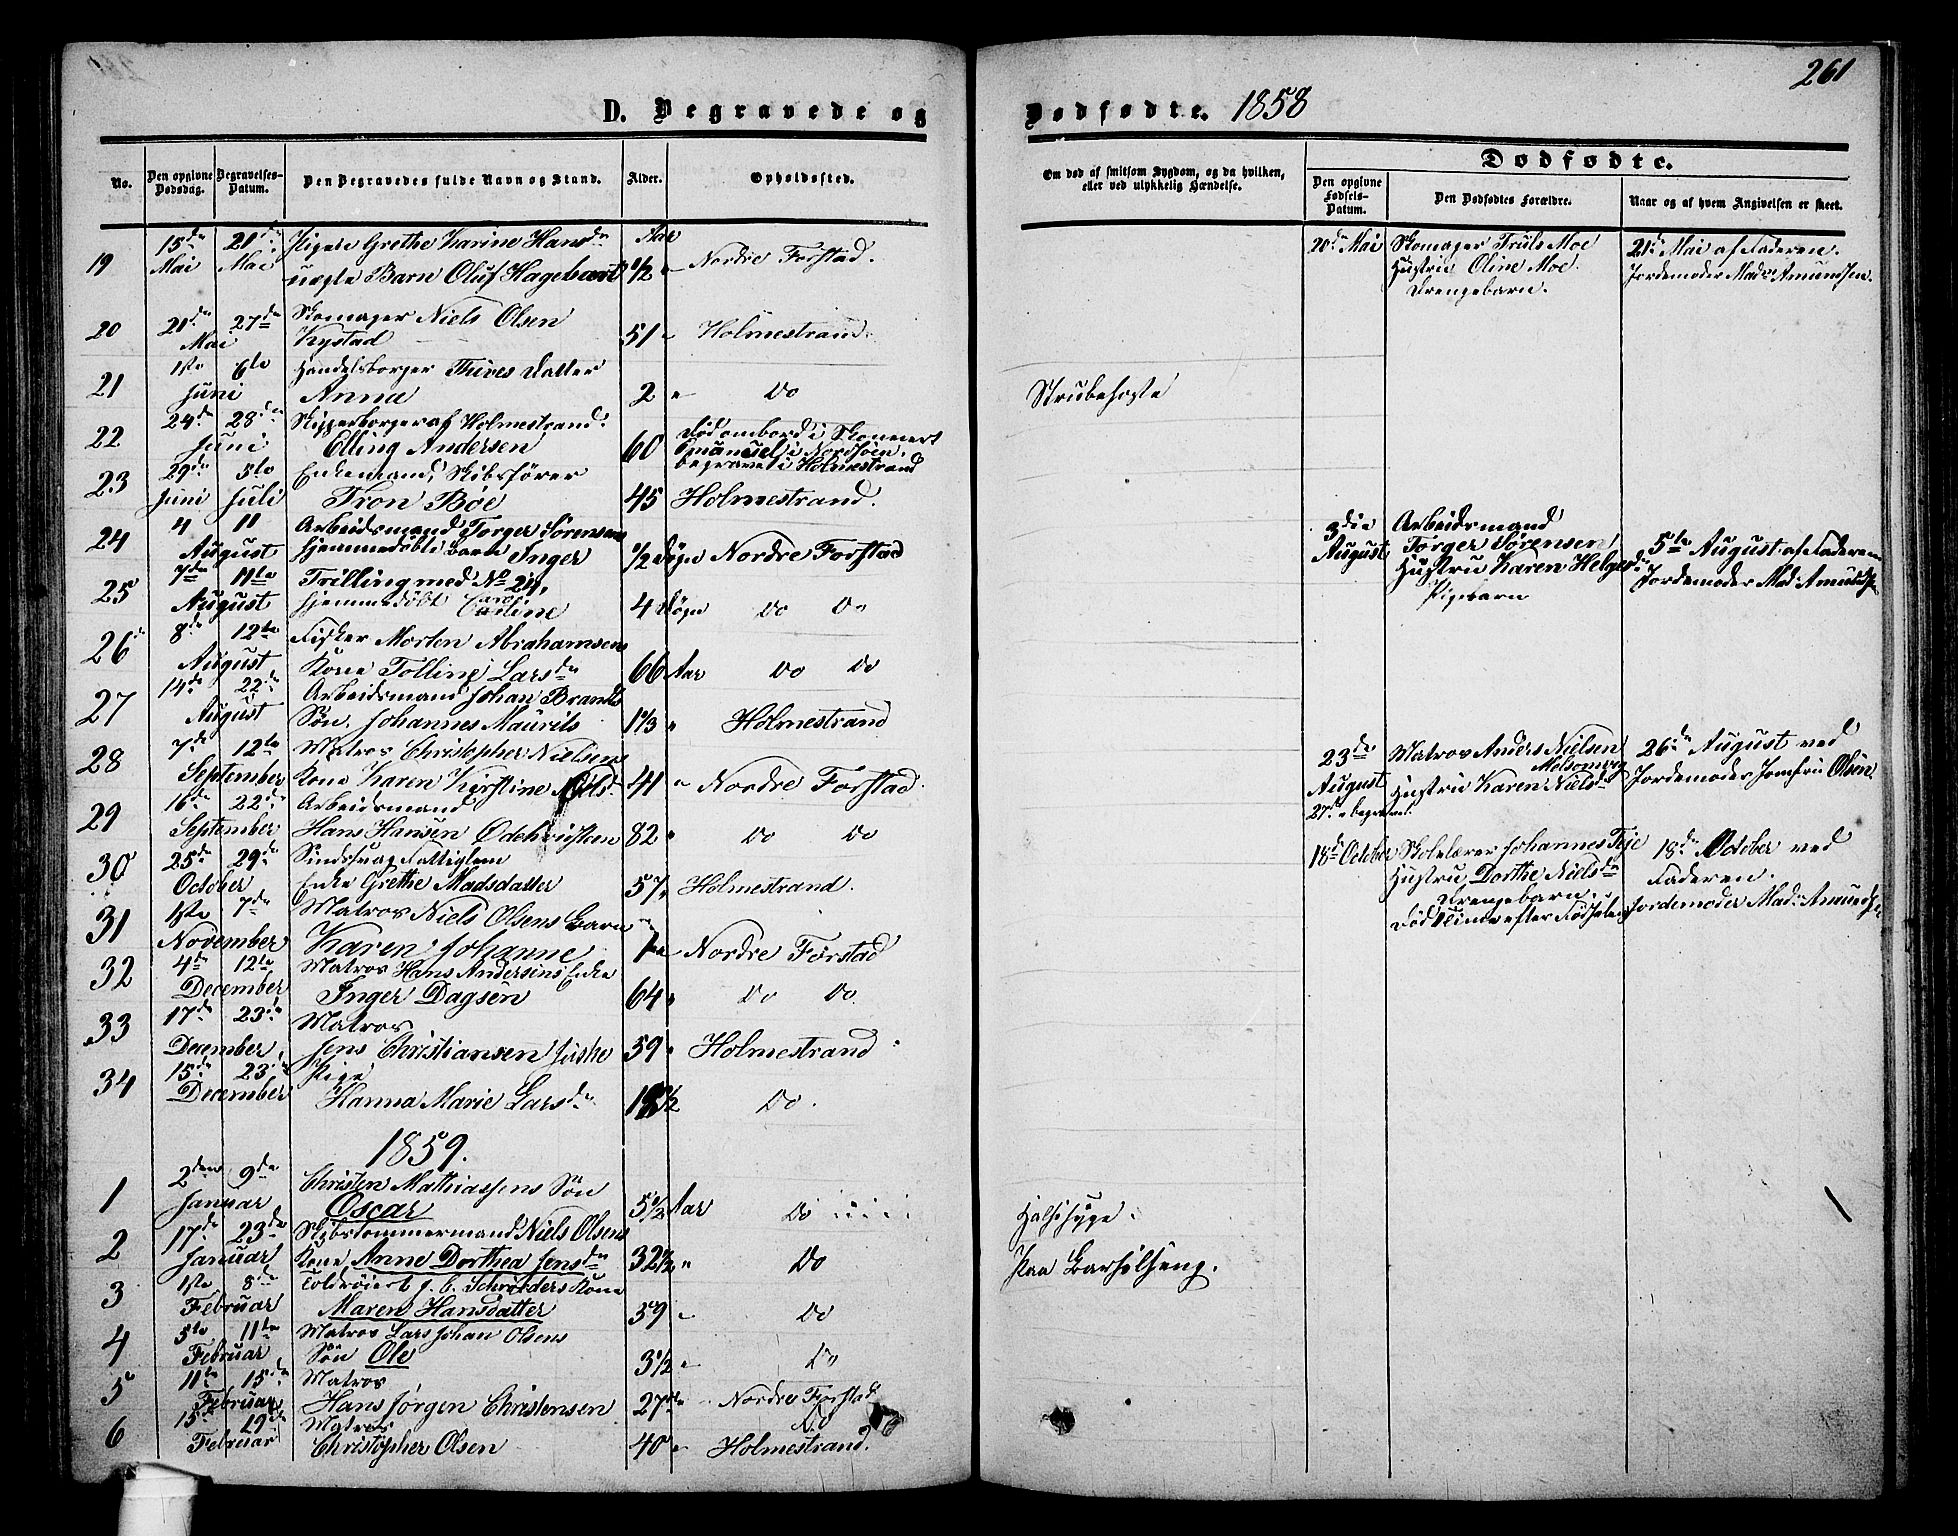 261
D. Begravede og Dødfødte. 1858
No. Den opgivne Dødsdag. Begravelses-Datum. Den Begravedes fulde Navn og Stand. Alder. Opholdssted.
Om død af smitsom Sygdom, og da hvilken, eller ved ulykkelig Hændelse.
Dødfødte.
Den opgivne Fødsels-Datum. Den Dødfødtes Forældre. Naar og af hvem Angivelsen er skeet.
15de 21de Pigen Grethe Karine Hansdr Aar
19 Mai Mai uægte Barn Oluf 1/2 " Nordre Forstad.
21de 27de Skomager Niels Olsen
20 Mai Kystad 51 " Holmestrand
1ste 6te Handelsborger Datter
21 Juni Anna 2 " Do Strubehoste
24de 28de Skipperborger af Holmestrand
22 Juni Elling Andersen 60 Død ombord i Skonnert Emanuel i Nordsöen, begravet i Holmestrand
29de 5te Enkemand, Skibsfører
23 Juni Juli Tron Böe 45 Holmestrand.
4 11 Arbeidsmand Torger Sørensens
24 August hjemmedöbte Barn Inger 1/2 Døgn Nordre Forstad
7de 11te Trilling med No 24,
25 August hjemmedöbt Caroline 4 Døgn Do Do
8de 12te Fisker Morten Abrahamsens
26 August Kone Larsdr 66 Aar Do Do
14de 22de Arbeidsmand Johan Brandts
27 August Søn Johannes Maurits 1 1/3 " Holmestrand
7de 12te Matros Christopher Nielsens
28 September Kone Karen Kirstine 41 " Nordre Forstad
16de 22de Arbeidsmand
29 September Hans Hansen 82 " Do Do
25de 29de Sindssvag Fattiglem
30 October Enke Grethe Madsdatter 57 " Holmestrand.
1ste 7de Matros Niels Olsens Barn
31 November Karen Johanne 1 Nordre Forstad
4de 12te Matros Hans Andersens Enke
32 December Inger Dagsen 64 " Do Do
17de 23de Matros
33 December Jens Christiansen 59 " Holmestrand
15de 23de Pige
34 December Hanna Marie Larsdr Do.
1859.
2den 9de Christen Mathiassens Søn
1 Januar Oscar 5 1/2 Aar Do Halssyge.
17de 23de Skibstømmermand Niels Olsens
2 Januar Kone Anne Dorthea Jensdr 32 1/2 " Do Paa Barselseng.
1ste 8de J. C. Schrøders Kone
3 Februar Maren Hansdatter 39 " Do
5te 11te Matros Lars Johan Olsens
4 Februar Søn Ole 3 1/2 " Do
11te 15de Matros
5 Februar Hans Jørgen Christensen 27 Nordre Forstad
15de 19de Matros Do
6 Februar Christopher Olsen 40 " Holmestrand.
20de Mai Skomager Truls Moe 21de Mai af Faderen.
Hustru Oline Moe. Jordemoder Mad: Amundsen.
Drengebarn.
3die Arbeidsmand
August Torger Sørensen 5te August af Faderen
Hustru Karen Helgesdr Jordemoder Mad: Amundsen
Pigebarn
23de Matros Anders Nielsen 26de August ved
August Hustru Karen Nielsdr Jordemoder Jomfru Olsen
27de begravet.
18de October Skolelærer Johannes 18de October ved
Hustru Dorthe Nielsdr Faderen.
Drengebarn. Jordemoder Mad: Amundsen
Død 1 Time efter Fødselen